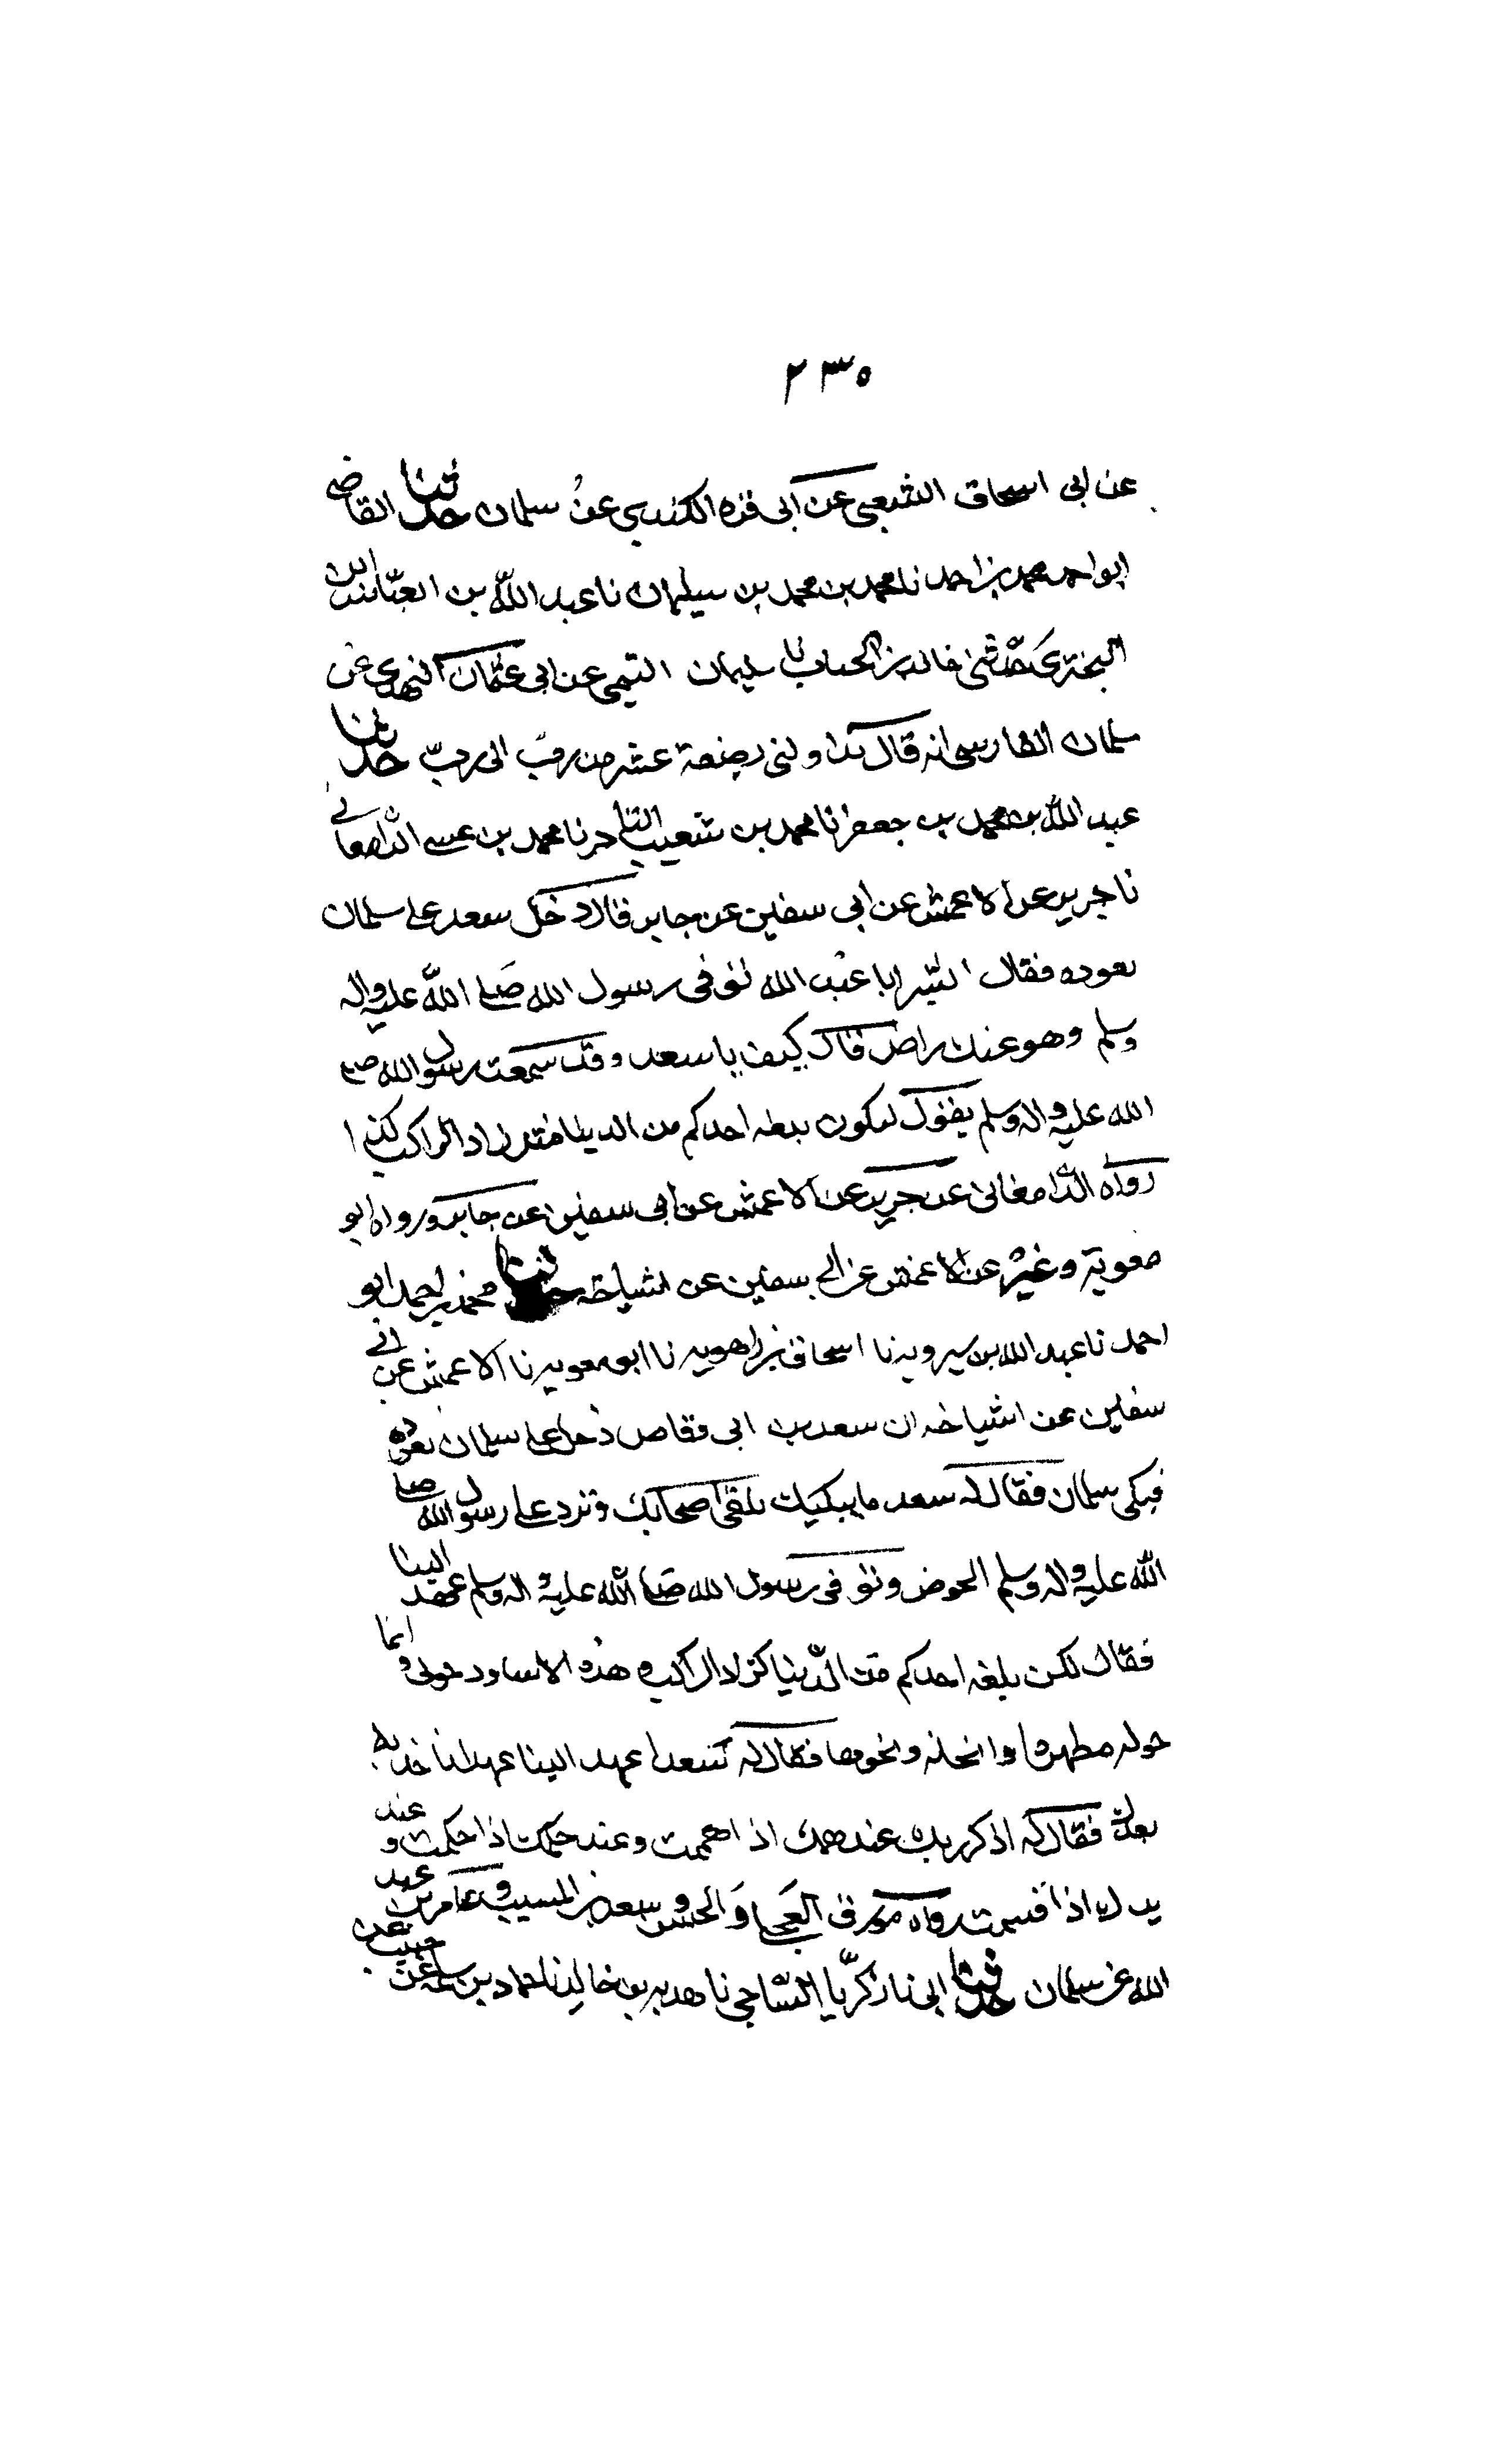 ٢٣٥
عن ابى اسحاق الشعبى عن ابى قره الكندى عن سلمان حدثنا القاضى
ابو احمد محمد بن احمد نا محمد بن محمد بن سليمان نا عبد الله بن العباس بن
البخترى حدثنى خالد بن الحباب نا سليمان التيمى عن ابى عثمان النهدى عن
سلمان الفارسى انه قال تداولنى بضعة عشر من رب الى رب حدثنا
عبد الله بن محمد بن جعفر نا محمد بن شعيب التاجر نا محمد بن عيسى الدامغانى
نا جرير عن الاعمش عن ابى سفين عن جابر قال دخل سعد على سلمان
يعوده فقال ابشر ابا عبد الله توفى رسول الله صلى الله عليه واله
وسلم وهو عنك راض قال كيف يا سعد وقد سمعت رسول الله صلى
الله عليه واله وسلم يقول ليكون بلغه احدكم من الدنيا مثل زاد الراكب كذا
رواه الدامغانى عن جرير عن الاعمش عن ابى سفين عن جابر ورواه ابو
معوية وغيره عن الاعمش عن ابى سفين عن اشياخه حدثنا محمد بن احمد ابو
احمد نا عبد الله بن سيرويه نا اسحاق بن راهويه نا ابو معويه نا الاعمش عن ابى
سفين عن اشياخه ان سعد بن ابى وقاص دخل على سلمان يعوده
فبكى سلمان فقال له سعد ما يبكيك تلقى اصحابك وترد على رسول الله صلى
الله عليه واله وسلم الحوض وتوفى رسول الله صلى الله عليه واله وسلم عهد الينا
فقال لكن بلغه احدكم من الدنيا كزاد الراكب وهذه الاساود حولى وانما
حوله مطهره او انجانه ونحوها فقال له سعد اعهد الينا عهدا ناخذ به
بعدك فقال له اذكر ربك عند همك اذا هممت وعند حكمك اذا حكمت وعند
يدك اذا قسمت رواه مورق العجلى والحسن وسعد بن المسيب وعامر بن عبد
الله عن سلمان حدثنا ابى نا زكريا الساجى نا هدبه بن خالد نا حماد بن سلمه عن حبيب عن